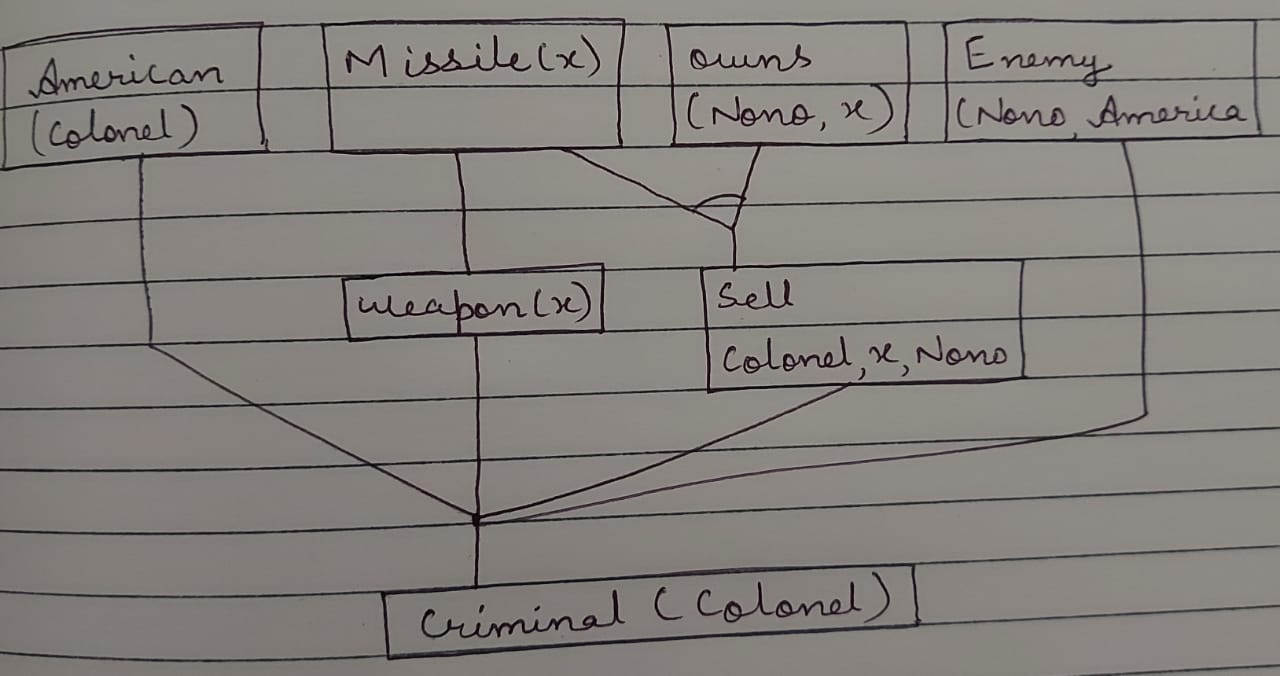 American
(Colonel)
Missile(x)
owns
(Nono, x)
Enemy
(Nono, America
weapon(x)
Sell
Colonel, x, Nono
Criminal (Colonel)